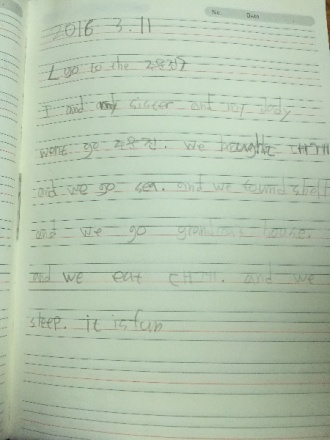 No.
Date
2016 3.11
I go to the 주문진
I and my sisser and my dady
went go 주문진. we boughte 대게
and we go sea. and we found shell
and we go grandma house.
and we eat 대게. and we
sleep. it is fun